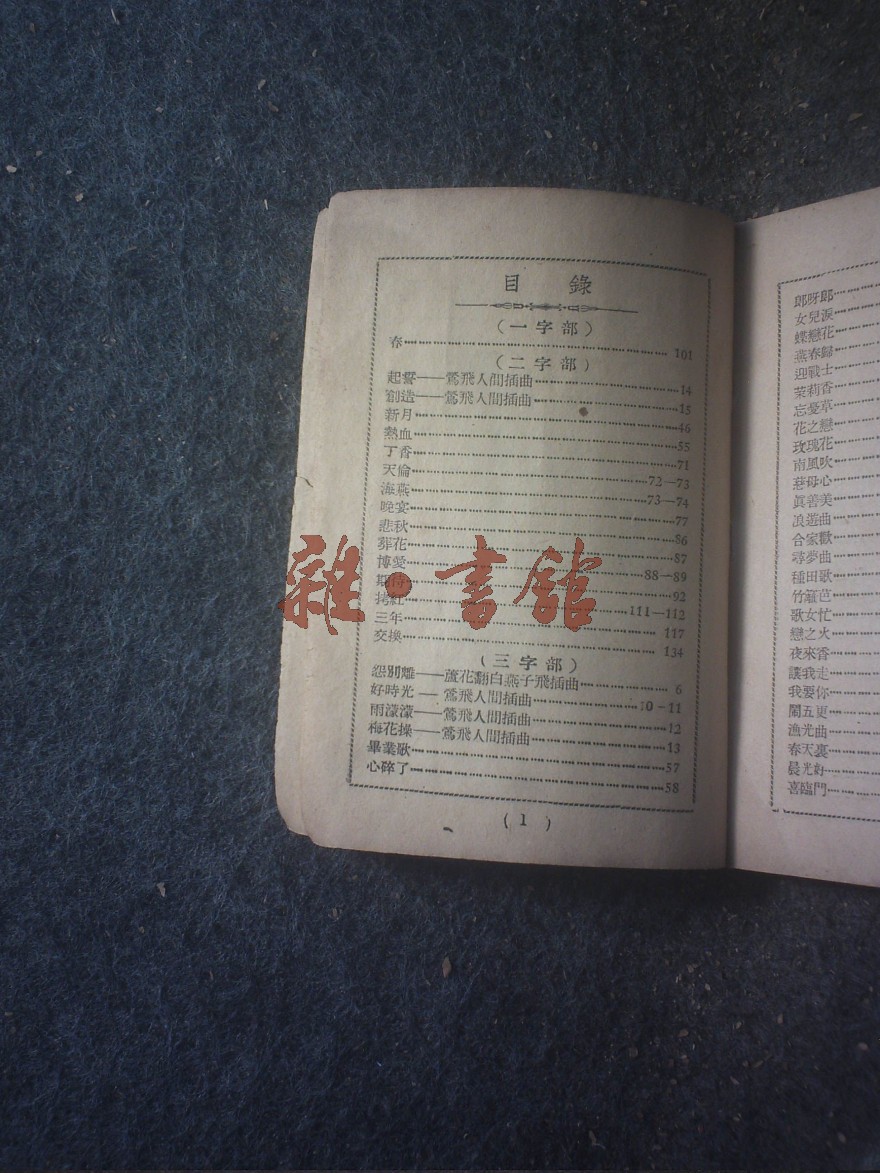 目 錄
(一字部)
春…………101
(二字部)
起誓——鶯飛人間插曲…………14
創造——鶯飛人間插曲…………15
新月…………46
熱血…………55
丁香…………71
天倫…………72—73
海燕…………73—74
晚宴…………77
悲秋…………86
葬花…………87
博愛…………88—89
期待…………92
拷紅…………111—112
三年…………117
交換…………134
(三字部)
怨別離——蘆花翻白燕子飛插曲…………6
好時光——鶯飛人間插曲…………10-11
雨濛濛——鶯飛人間插曲…………12
梅花操——鶯飛人間插曲…………13
畢業歌…………57
心碎了…………58
(1)
郎呀郎
女兒淚
蝶戀花
燕春歸
迎戰士
茉莉香
忘憂草
花之戀
玫瑰花
南風吹
慈母心
眞善美
浪遊曲
合家歡
尋夢曲
種田歌
竹籬笆
歌女忙
戀之火
夜來香
讓我走
我要你
鬧五更
漁光曲
春天裏
晨光約
喜臨門
雜·書館